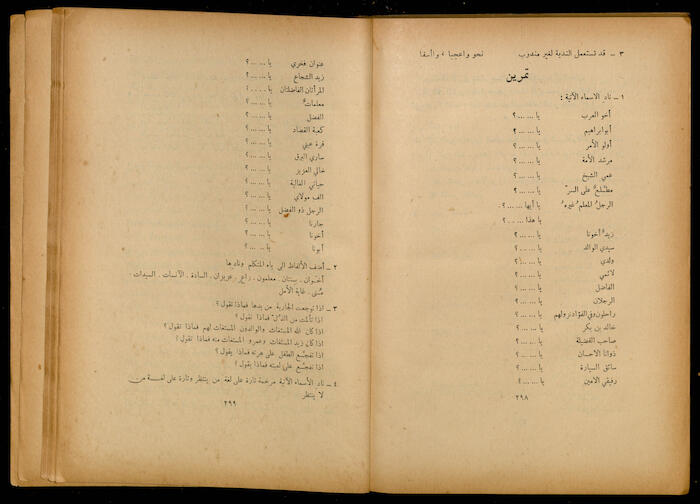 ٣ – قد تستعمل الندبة لغير مندوب نحو واعجبا ، واأسفا
تمرين
١ – ناد الاسماء الآتية :
أخو العرب يا ...... ؟
أبو ابراهيم يا ...... ؟
أولو الأمر يا ...... ؟
مرشد الأمة يا ...... ؟
عمي الشيخ يا ...... ؟
مطّلعٌ على السرّ يا ...... ؟
الرجلُ المعلمُ غيرهُ يا أيها ...... ؟
يا هذا ...... ؟
زيدٌ أخونا يا ...... ؟
سيدي الوالد يا ...... ؟
ولدي يا ...... ؟
لائمي يا ...... ؟
الفاضل يا ...... ؟
الرجلان يا ...... ؟
راحلون وفي الفؤاد نزولهم يا ...... ؟
خالد بن بكر يا ...... ؟
صاحب الفضيلة يا ...... ؟
ذواتا الاحسان يا ...... ؟
سائق السيارة يا ...... ؟
رفيقي الامين يا ...... ؟
٢٩٨
عنوان فخري يا ...... ؟
زيد الشجاع يا ...... ؟
المرأتان الفاضلتان يا ...... ؟
معلماتٌ يا ...... ؟
الفضل يا ...... ؟
كعبة القصّاد يا ...... ؟
قرة عيني يا ...... ؟
ساري البرق يا ...... ؟
خالي العزيز يا ...... ؟
حياتي الغالية يا ...... ؟
الف مولاي يا ...... ؟
الرجل ذو الفضل يا ...... ؟
جارنا يا ...... ؟
أخونا يا ...... ؟
أبونا يا ...... ؟
٢ – أضف الألفاظ الى ياء المتكلم ونادها
أخوان . بنتان . معلمون . راعٍ . عزيزان . السادة . الآنسات . السيدات .
مُنى . غاية الأمل
٣ – اذا توجعت الجارية من يدها فماذا تقول ؟
اذا تألمت من الذلّ فماذا تقول ؟
اذا كان الله المستغاث والوالدون المستغاث لهم فماذا تقول ؟
اذا كان زيد المستغاث وعمرو المستغاث منه فماذا تقول ؟
اذا تفجّع الطفل على هرته فماذا يقول ؟
اذا تفجّع على لعبته فماذا يقول ؟
٤ – ناد الأسماء الآتية مرخمة تارة على لغة من ينتظر وتارة على لغة من
لا ينتظر
٢٩٩